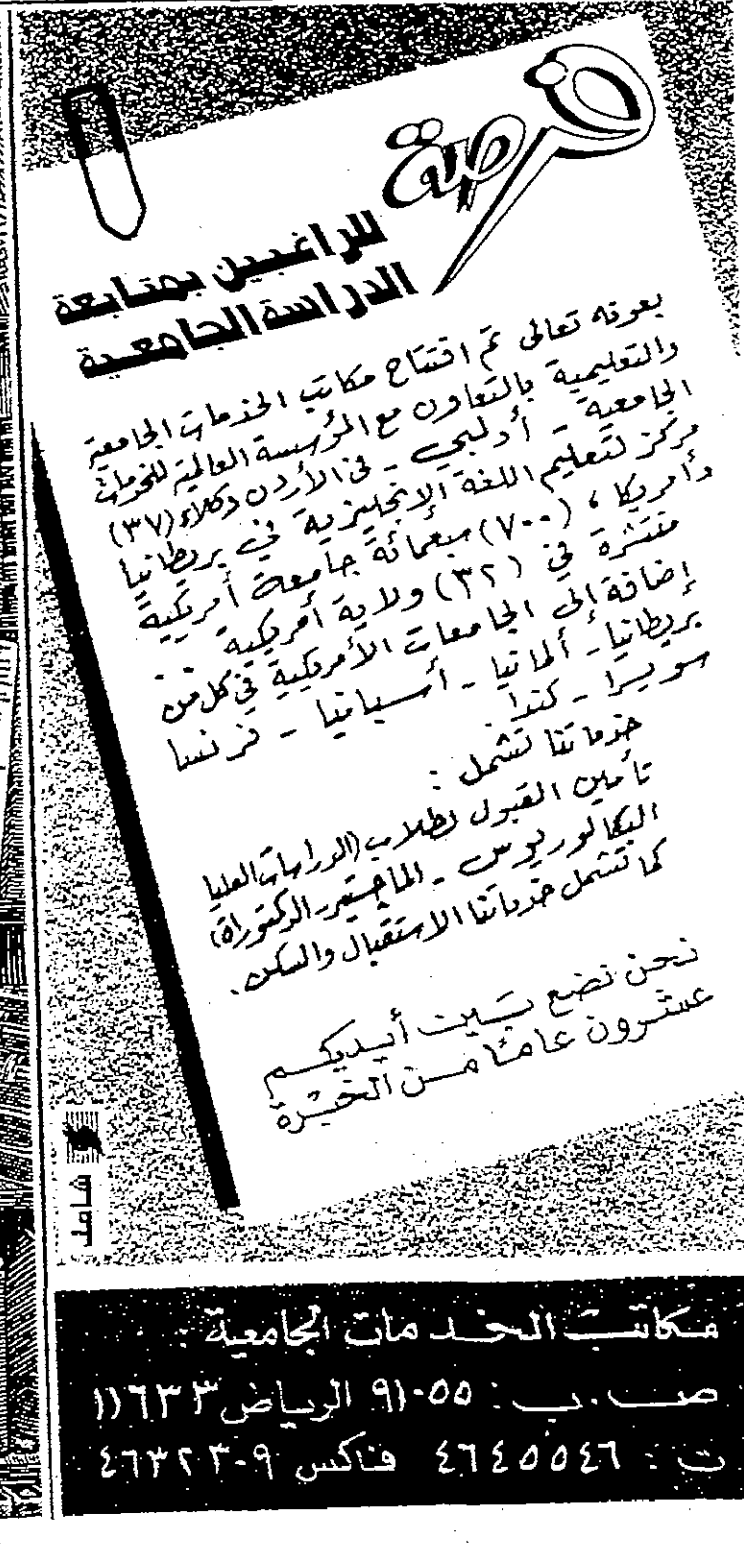 فرصة
للراغبين بمتابعة
الدراسة الجامعية
بعونه تعالى تم افتتاح مكاتب الخدمات الجامعية
والتعليمية بالتعاون مع المؤسسة العالمية للخدمات
الجامعية - أدلبي - في الأردن وكلاء (٣٧)
مركز لتعليم اللغة الإنجليزية في بريطانيا
وأمريكا ، (٧٠٠) سبعمائة جامعة أمريكية
منتشرة في (٣٢) ولاية أمريكية ..
إضافة إلى الجامعات الأمريكية في كل من
بريطانيا - ألمانيا - أسبانيا - فرنسا
سويسرا - كندا
خدماتنا تشمل :
تأمين القبول لطلاب (الدراسات العليا
البكالوريوس - الماجستير - الدكتوراة)
كما تشمل خدماتنا الاستقبال والسكن .
نحن نضع بين أيديكم
عشرون عاماً من الخبرة
شامل
مكاتب الخدمات الجامعية :
ص . ب : ٩١٠٥٥ الرياض ١١٦٣٣
ت : ٤٦٤٥٥٤٦ فاكس ٤٦٣٢٣٠٩